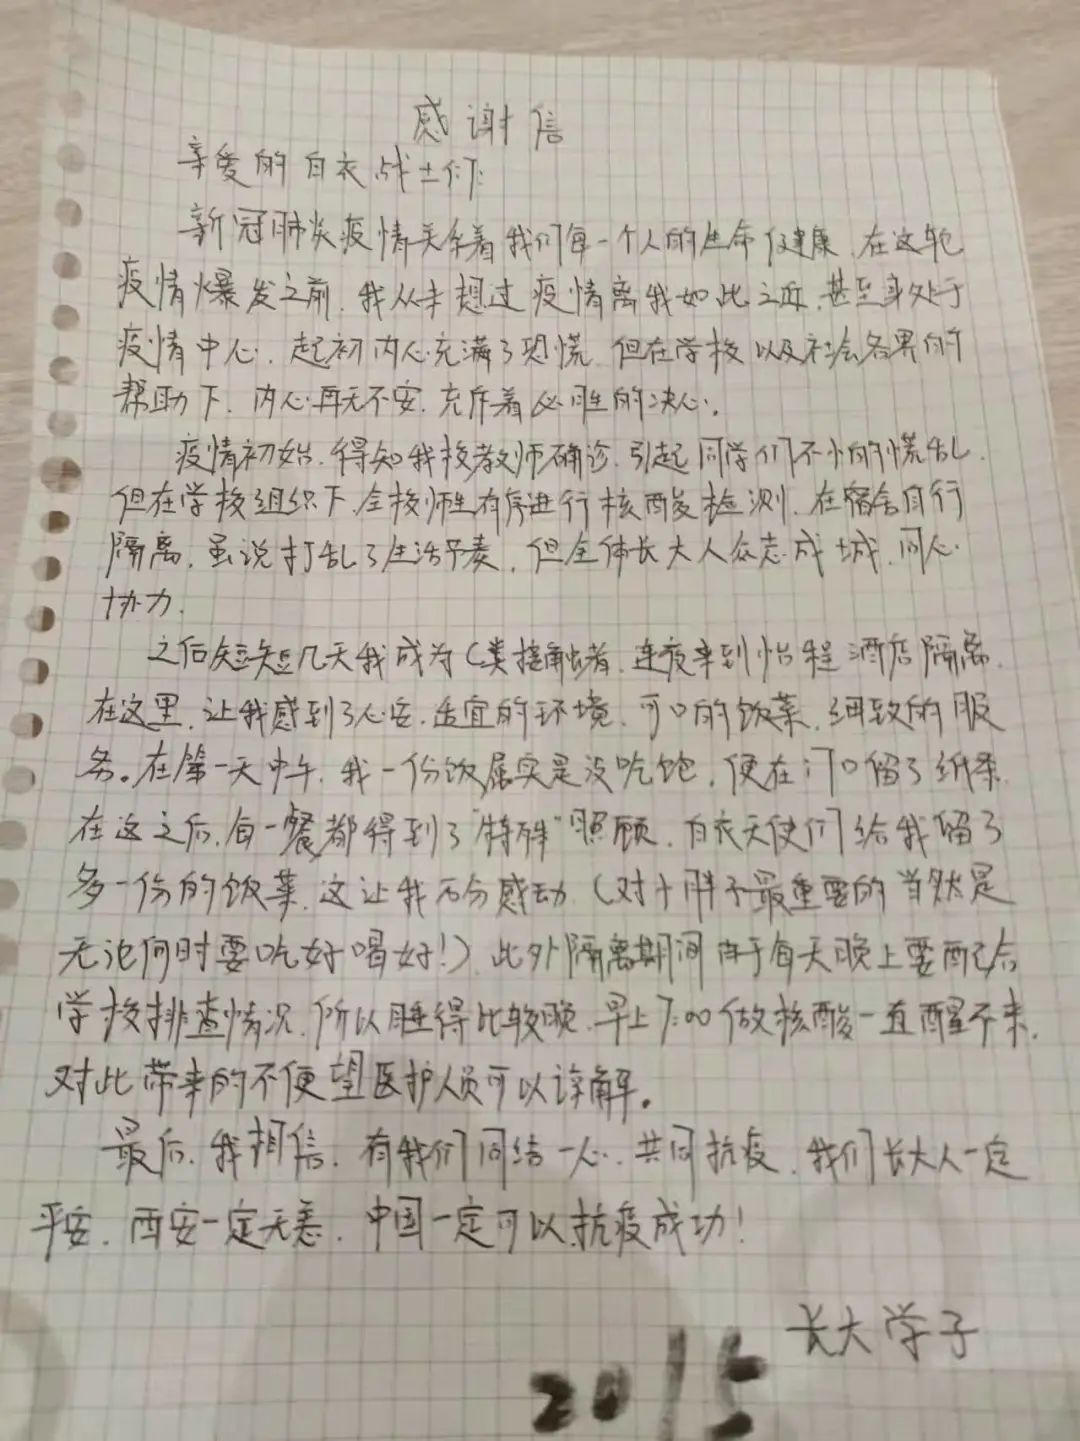 感谢信
亲爱的白衣战士们:
新冠肺炎疫情关系着我们每一个人的生命健康,在这轮
疫情爆发之前,我从未想过疫情离我如此之近,甚至身处于
疫情中心,起初内心充满了恐慌,但在学校以及社会各界的
帮助下,内心再无不安,充斥着必胜的决心。
疫情初始,得知我校教师确诊,引起同学们不小的慌乱,
但在学校组织下,全校师生有序进行核酸检测,在宿舍自行
隔离,虽说打乱了生活节奏,但全体长大人众志成城,同心
协力.
之后短短几天我成为C类接触者,连夜来到怡程酒店隔离,
在这里,让我感到了心安,适宜的环境,可口的饭菜,细致的服
务。在第一天中午,我一份饭属实是没吃饱,便在门口留了纸条,
在这之后,每一餐都得到了"特殊"照顾,白衣天使们给我留了
多一份的饭菜,这让我万分感动(对于胖子最重要的当然是
无论何时要吃好喝好!),此外隔离期间由于每天晚上要配合
学校排查情况,所以睡得比较晚,早上7:00做核酸一直醒不来,
对此带来的不便望医护人员可以谅解。
最后,我相信,有我们团结一心,共同抗疫,我们长大人一定
平安,西安一定无恙,中国一定可以抗疫成功!
长大学子
2015